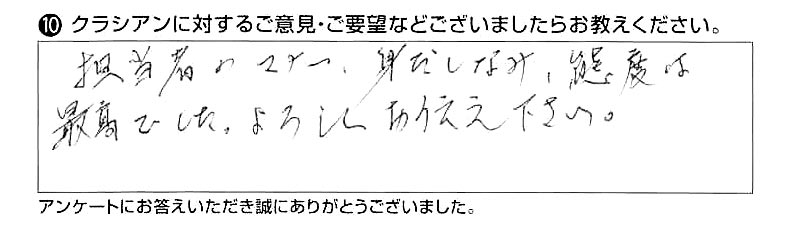 ⑩ クラシアンに対するご意見・ご要望などございましたらお教えください。
担当者のマナー、身だしなみ、態度は
最高でした。よろしくお伝え下さい。
アンケートにお答えいただき誠にありがとうございました。